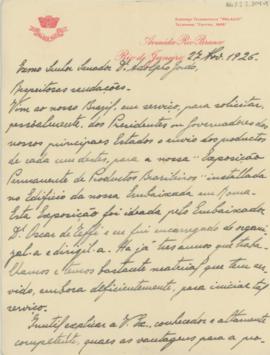 Avenida Rio Branco
Rio de Janeiro 27 Nov. 1926.
Exmo Senhor Senador Dr. Adolpho Gordo,
Respeitosas saudações.
Vim ao nosso Brazil, em serviço, para solicitar,
pessoalmente, dos Presidentes ou Governadores dos
nossos principaes Estados o envio dos productos
de cada um destes, para a nossa "Exposição
Permanente de Productos Brasileiros" installada
no Edificio da nossa Embaixada em Roma.
Esta Exposição foi ideada pelo Embaixador
Dr. Oscar de Teffé e eu fui encarregado de organi-
zal-a e dirigil-a. Ha já tres annos que traba-
lhamos e temos bastante material que tem ser-
vido, embora deficientemente, para iniciar tal
serviço.
Inutil explicar a V. Ex., conhecedor e altamente
competente, quaes as vantagens para a pro-